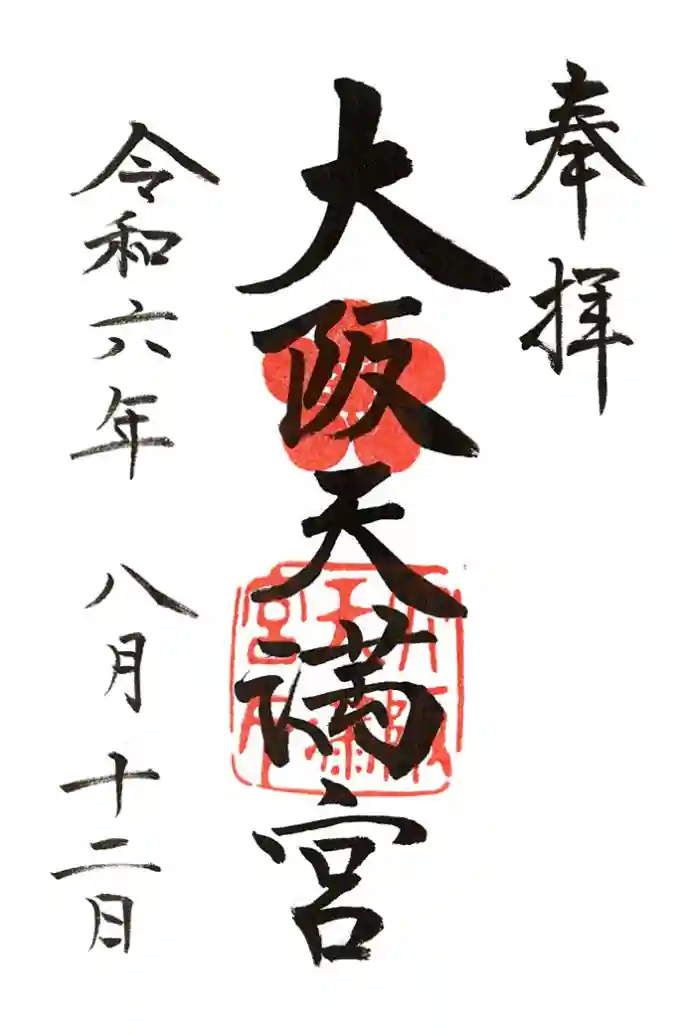 奉拝
大阪天満宮
令和六年 八月十二日